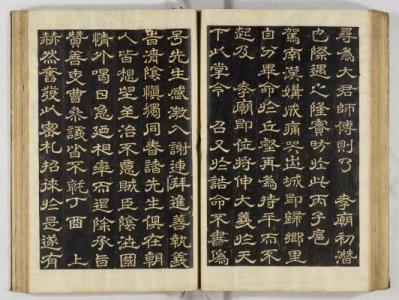 尋爲大君師傅則乃 孝廟初潛
也際遇之隆實昉於此丙子扈
駕南漢媾成痛哭出城即歸鄉里
自分畢命於丘壑再爲持平而不
起及 孝廟即位將伸大義於天
下以掌令 召又於誥命不書僞
号先生感激入謝連拜進善執義
旹淸陰愼獨同春諸先生俱在朝
人皆想望至治不意賊臣陰泄國
情外喝日急迺相率而退除承旨
贊善吏曹參議皆不就丁酉 上
赫然奮發以密札招徠於是遂有